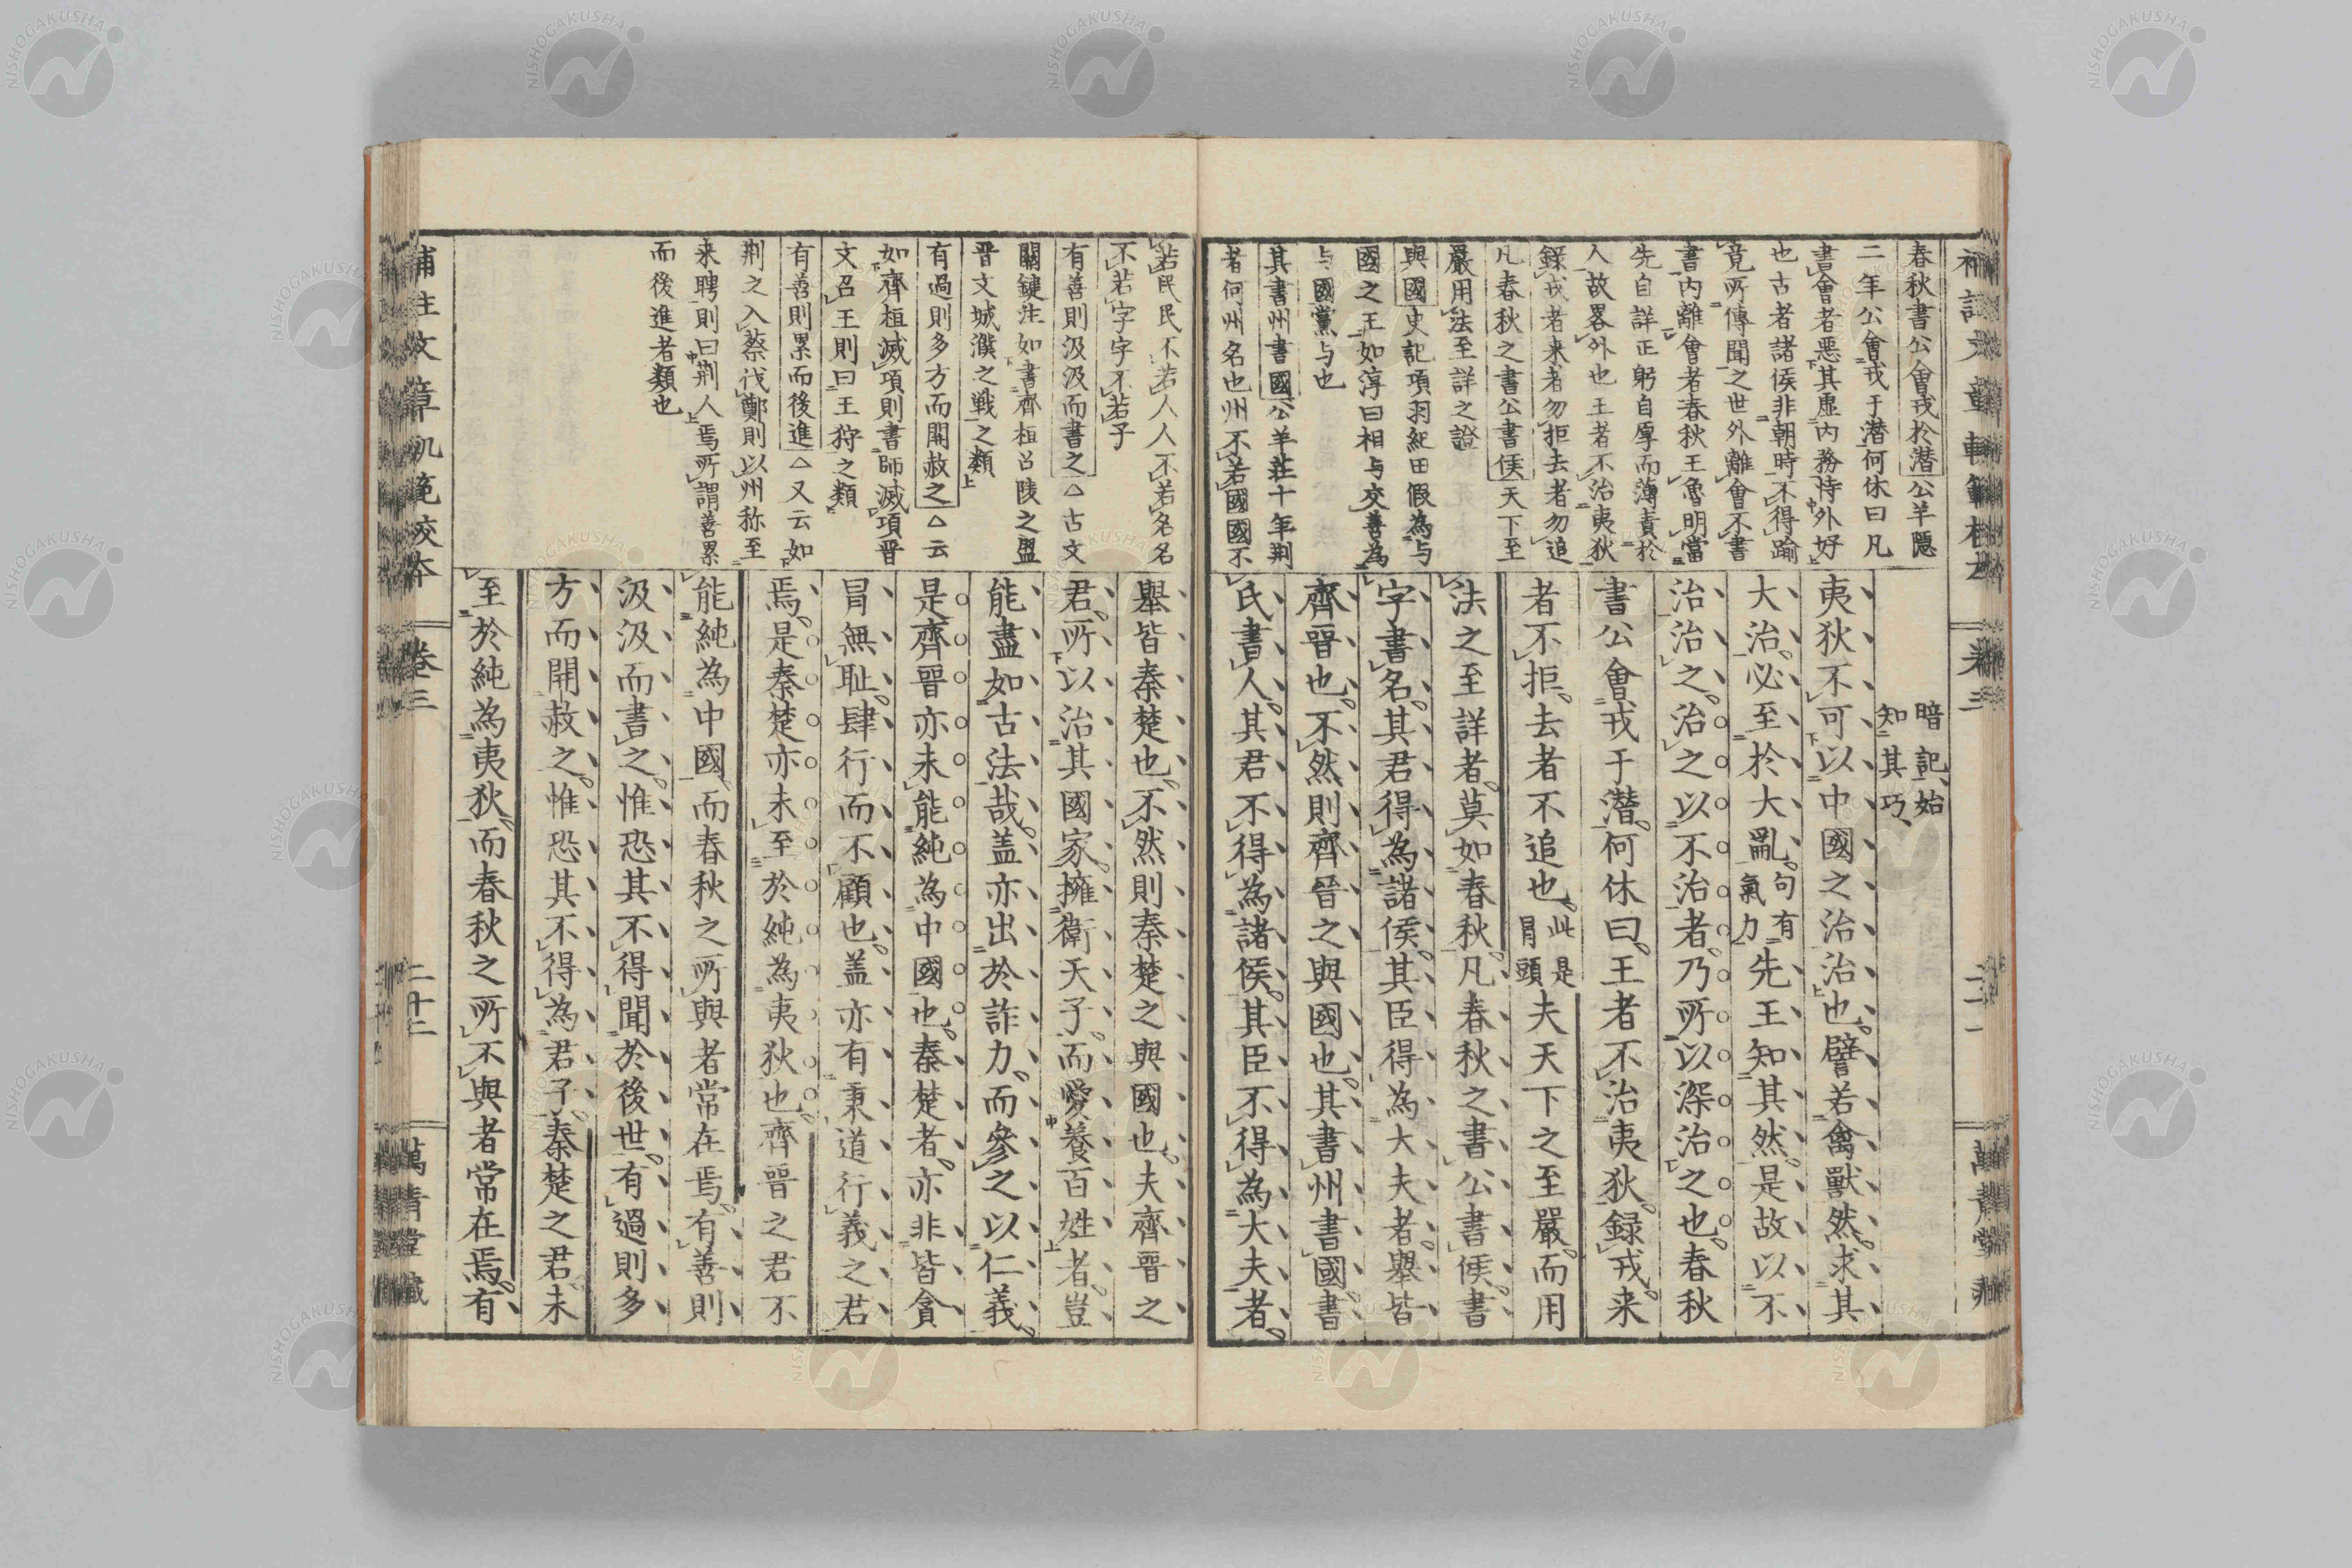 春秋書公會戎於潛公羊隱
二年公會戎于潛何休曰凡
書會者惡其虛內務恃外好
也古者諸侯非朝時不得踰
竟所傳聞之世外離會不書
書內離會者春秋王魯明當
先自詳正躬自厚而薄責於
人故畧外也王者不治夷狄
錄戎者来者勿拒去者勿追
凡春秋之書公書侯天下至
嚴用法至詳之證
與國史記項羽紀田假為与
國之王如淳曰相与交善為
与國黨与也
其書州書國公羊莊十年荆
者何州名也州不若國國不
暗記始
知其巧
夷狄不可以中國之治治也譬若禽獸然求其
大治必至於大亂句有氣力先王知其然是故以不
治治之治之以不治者乃所以深治之也春秋
書公會戎于潛何休曰王者不治夷狄録戎来
者不拒去者不追也此是冐頭夫天下之至嚴而用
法之至詳者莫如春秋凡春秋之書公書侯書
字書名其君得為諸侯其臣得為大夫者舉皆
齊晉也不然則齊晉之與國也其書州書國書
氏書人其君不得為諸侯其臣不得為大夫者
若氏氏不若人人不若名名
不若字字不若子
有善則汲汲而書之△古文
關鍵注如書齊桓召陵之盟
晋文城濮之戰之類
有過則多方而開赦之△云
如齊桓滅項則書師滅項晋
文召王則曰王狩之類
有善則累而後進△又云如
荆之入蔡伐鄭則以州称至
来聘則曰荆人焉所謂善累
而後進者類也
舉皆秦楚也不然則秦楚之與國也夫齊晉之
君所以治其國家擁衛天子而愛養百姓者豈
能盡如古法哉盖亦出於詐力而參之以仁義
是齊晉亦未能純為中國也秦楚者亦非皆貪
冒無恥肆行而不顧也盖亦有秉道行義之君
焉是秦楚亦未至於純為夷狄也齊晉之君不
能純為中國而春秋之所與者常在焉有善則
汲汲而書之惟恐其不得聞於後世有過則多
方而開赦之惟恐其不得為君子秦楚之君未
至於純為夷狄而春秋之所不與者常在焉有
補註文章軌範校本 卷三 二十二 萬青堂藏